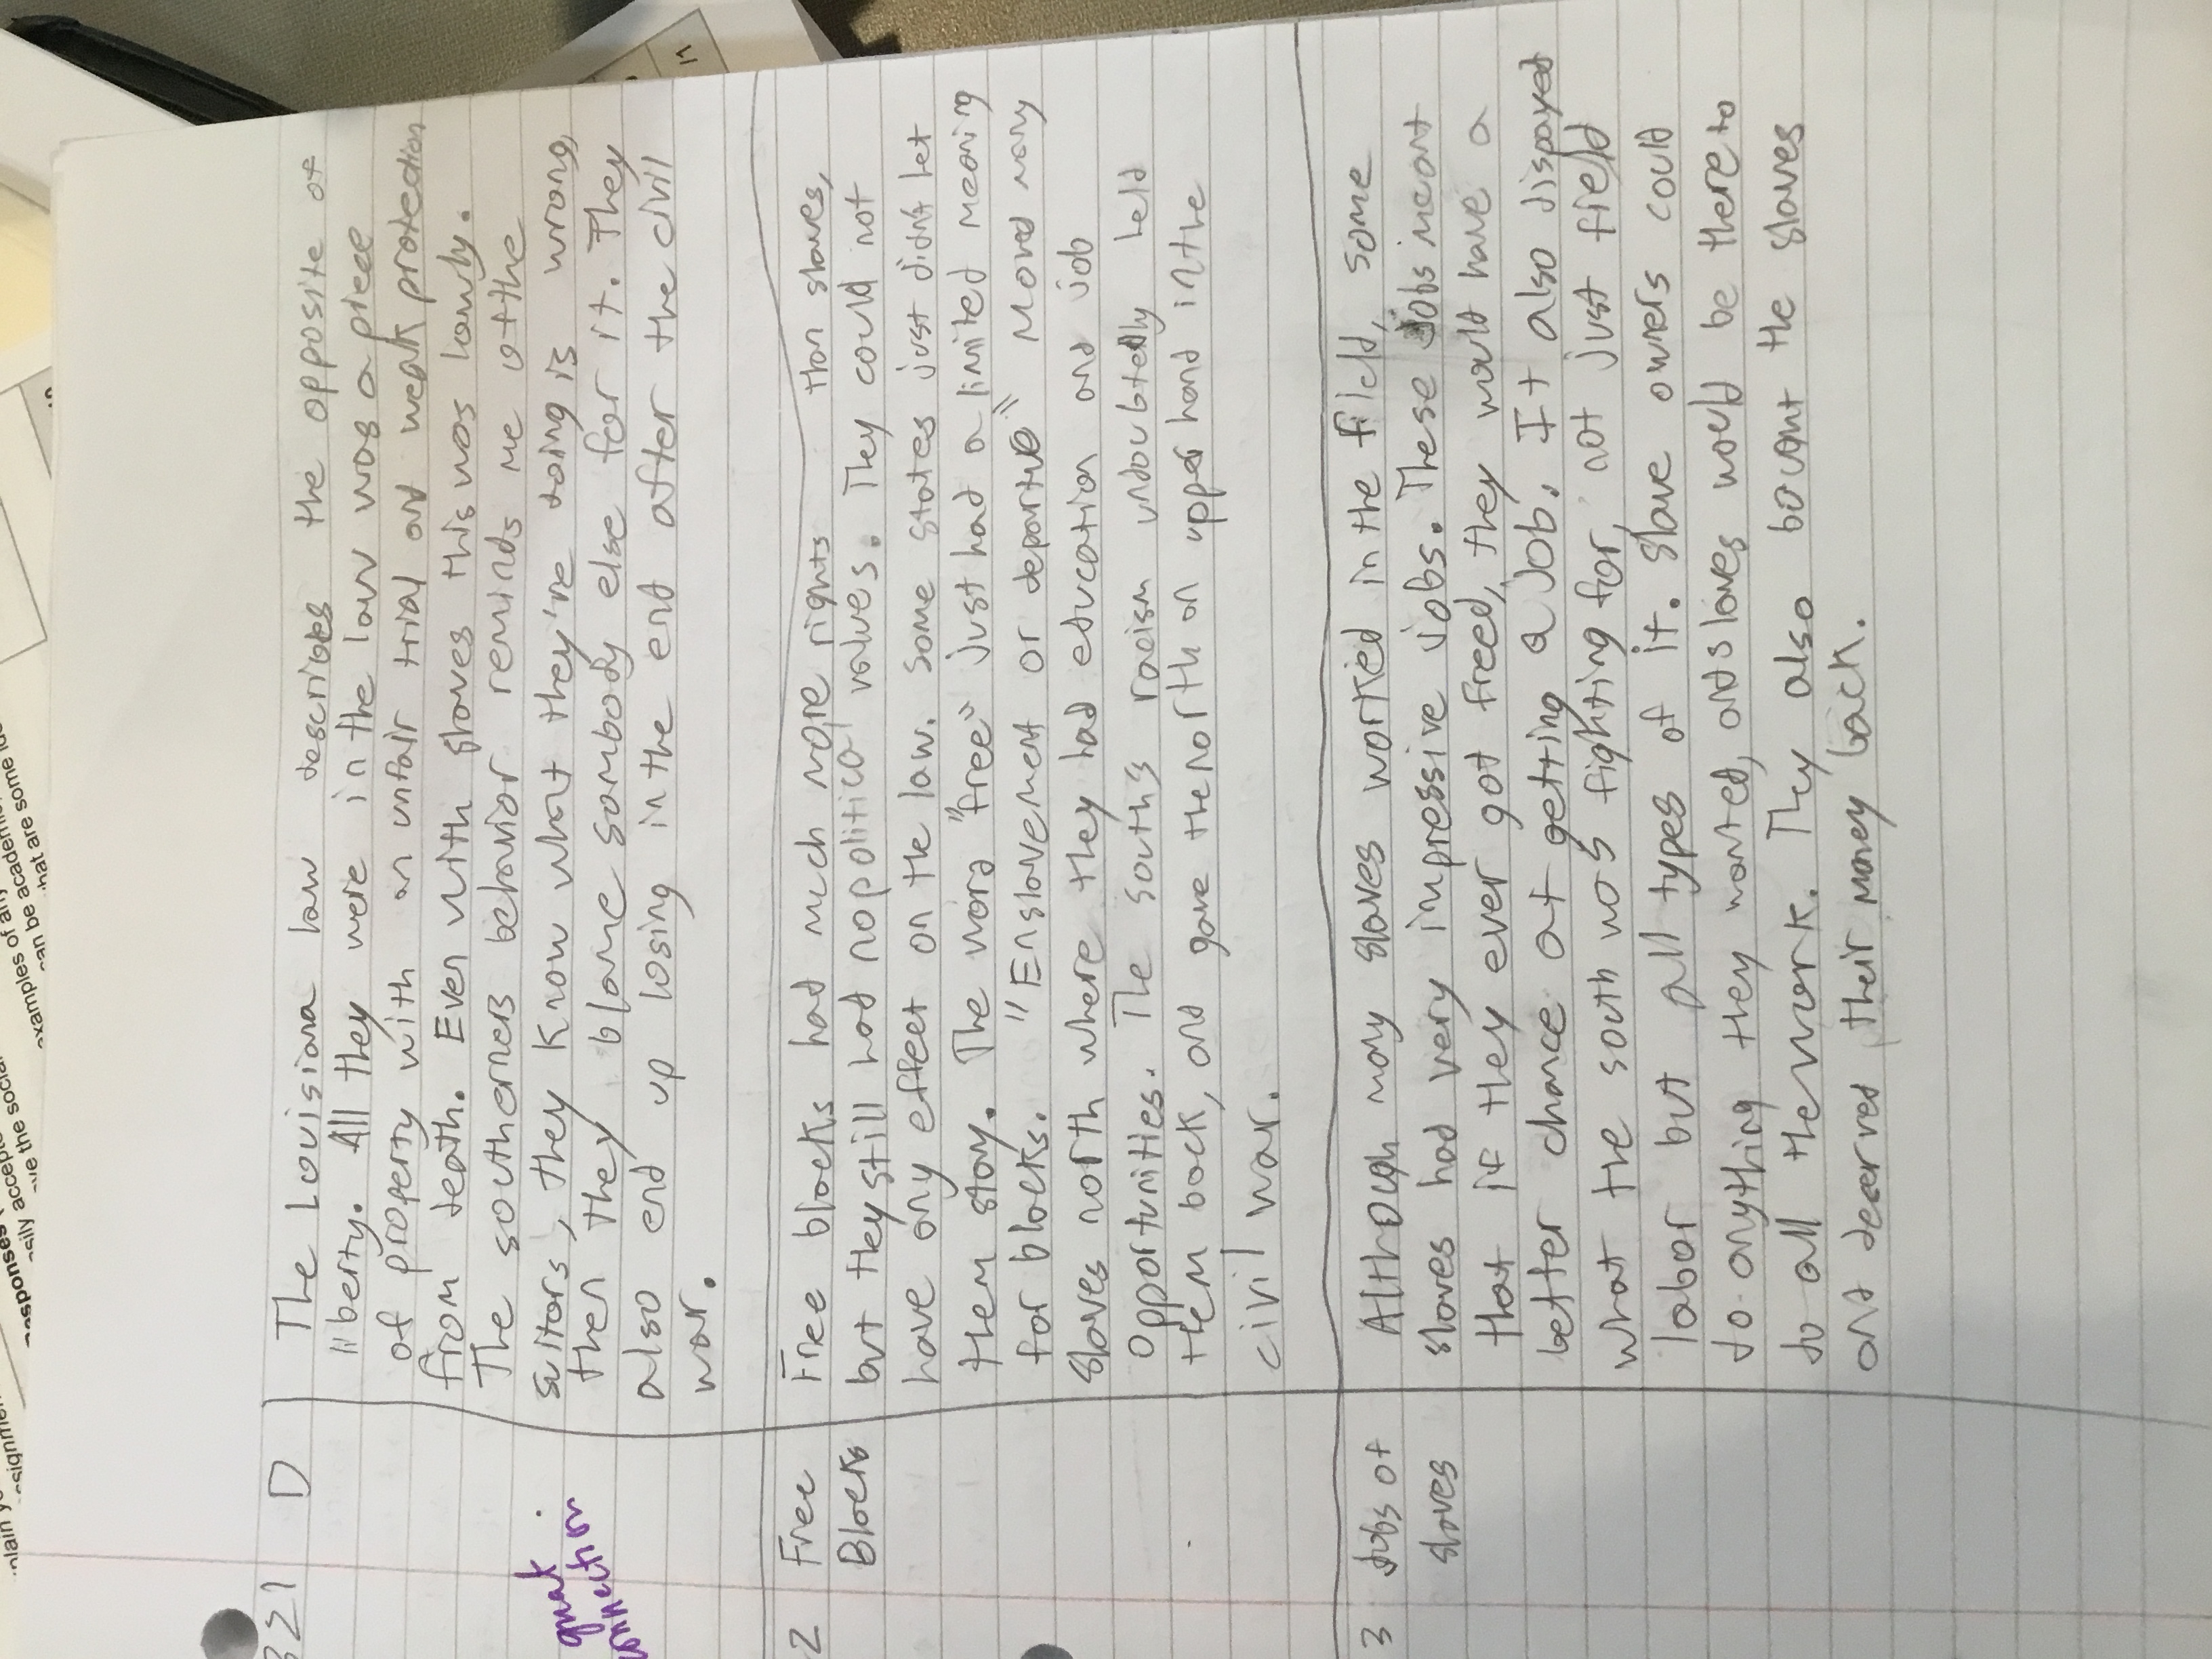 plain y
signme
esponses
sily accept
ve the social
examples of any
can be academi
hat are some id
321 D
The Louisiana law describes the opposite of
liberty. All they were in the law was a piece
of property with an unfair trial and weak protection
from death. Even with slaves this was lowly.
The southerners behavior reminds me of the
suitors, they know what they're doing is wrong,
then they blame sombody else for it. They
also end up losing in the end after the civil
war.
great
connection
2 Free
Blacks
Free blacks had much more rights than slaves,
but they still had no political values. They could not
have any effect on the law. Some states just didn't let
them stay. The word "free" just had a limited meaning
for blacks. "Enslavement or departue" moved many
slaves north where they had education and job
opportunities. The south's racism undoubtedly held
them back, and gave the north an upper hand in the
civil war.
3 Jobs of
slaves
Although many slaves worked in the field, some
slaves had very impressive jobs. These Jobs meant
that if they ever got freed, they would have a
better chance at getting a job. It also dispayed
what the south was fighting for, not just field
labor but all types of it. Slave owners could
do anything they wanted, and slaves would be there to
do all the work. They also bought the slaves
and deserved their money back.
17